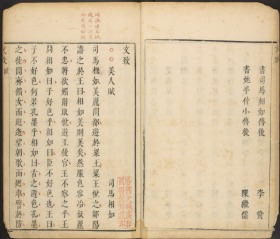 書司馬相如傳後 李贄
書姚平仲小傳後 陳繼儒
文致
美人賦 司馬相如
司馬相如美麗閒都遊於梁王梁王悅之鄒陽
譖之於王曰相如美則美矣然服色容冶妖麗
不忠將欲媚辭取悅遊王後宮王不察之乎王
問相如曰子好色乎相如曰臣不好色也王曰
子不好色何若孔墨乎相如曰古之避色孔墨
之徒聞齊饋女而遐逝望朝歌而迴車
文致